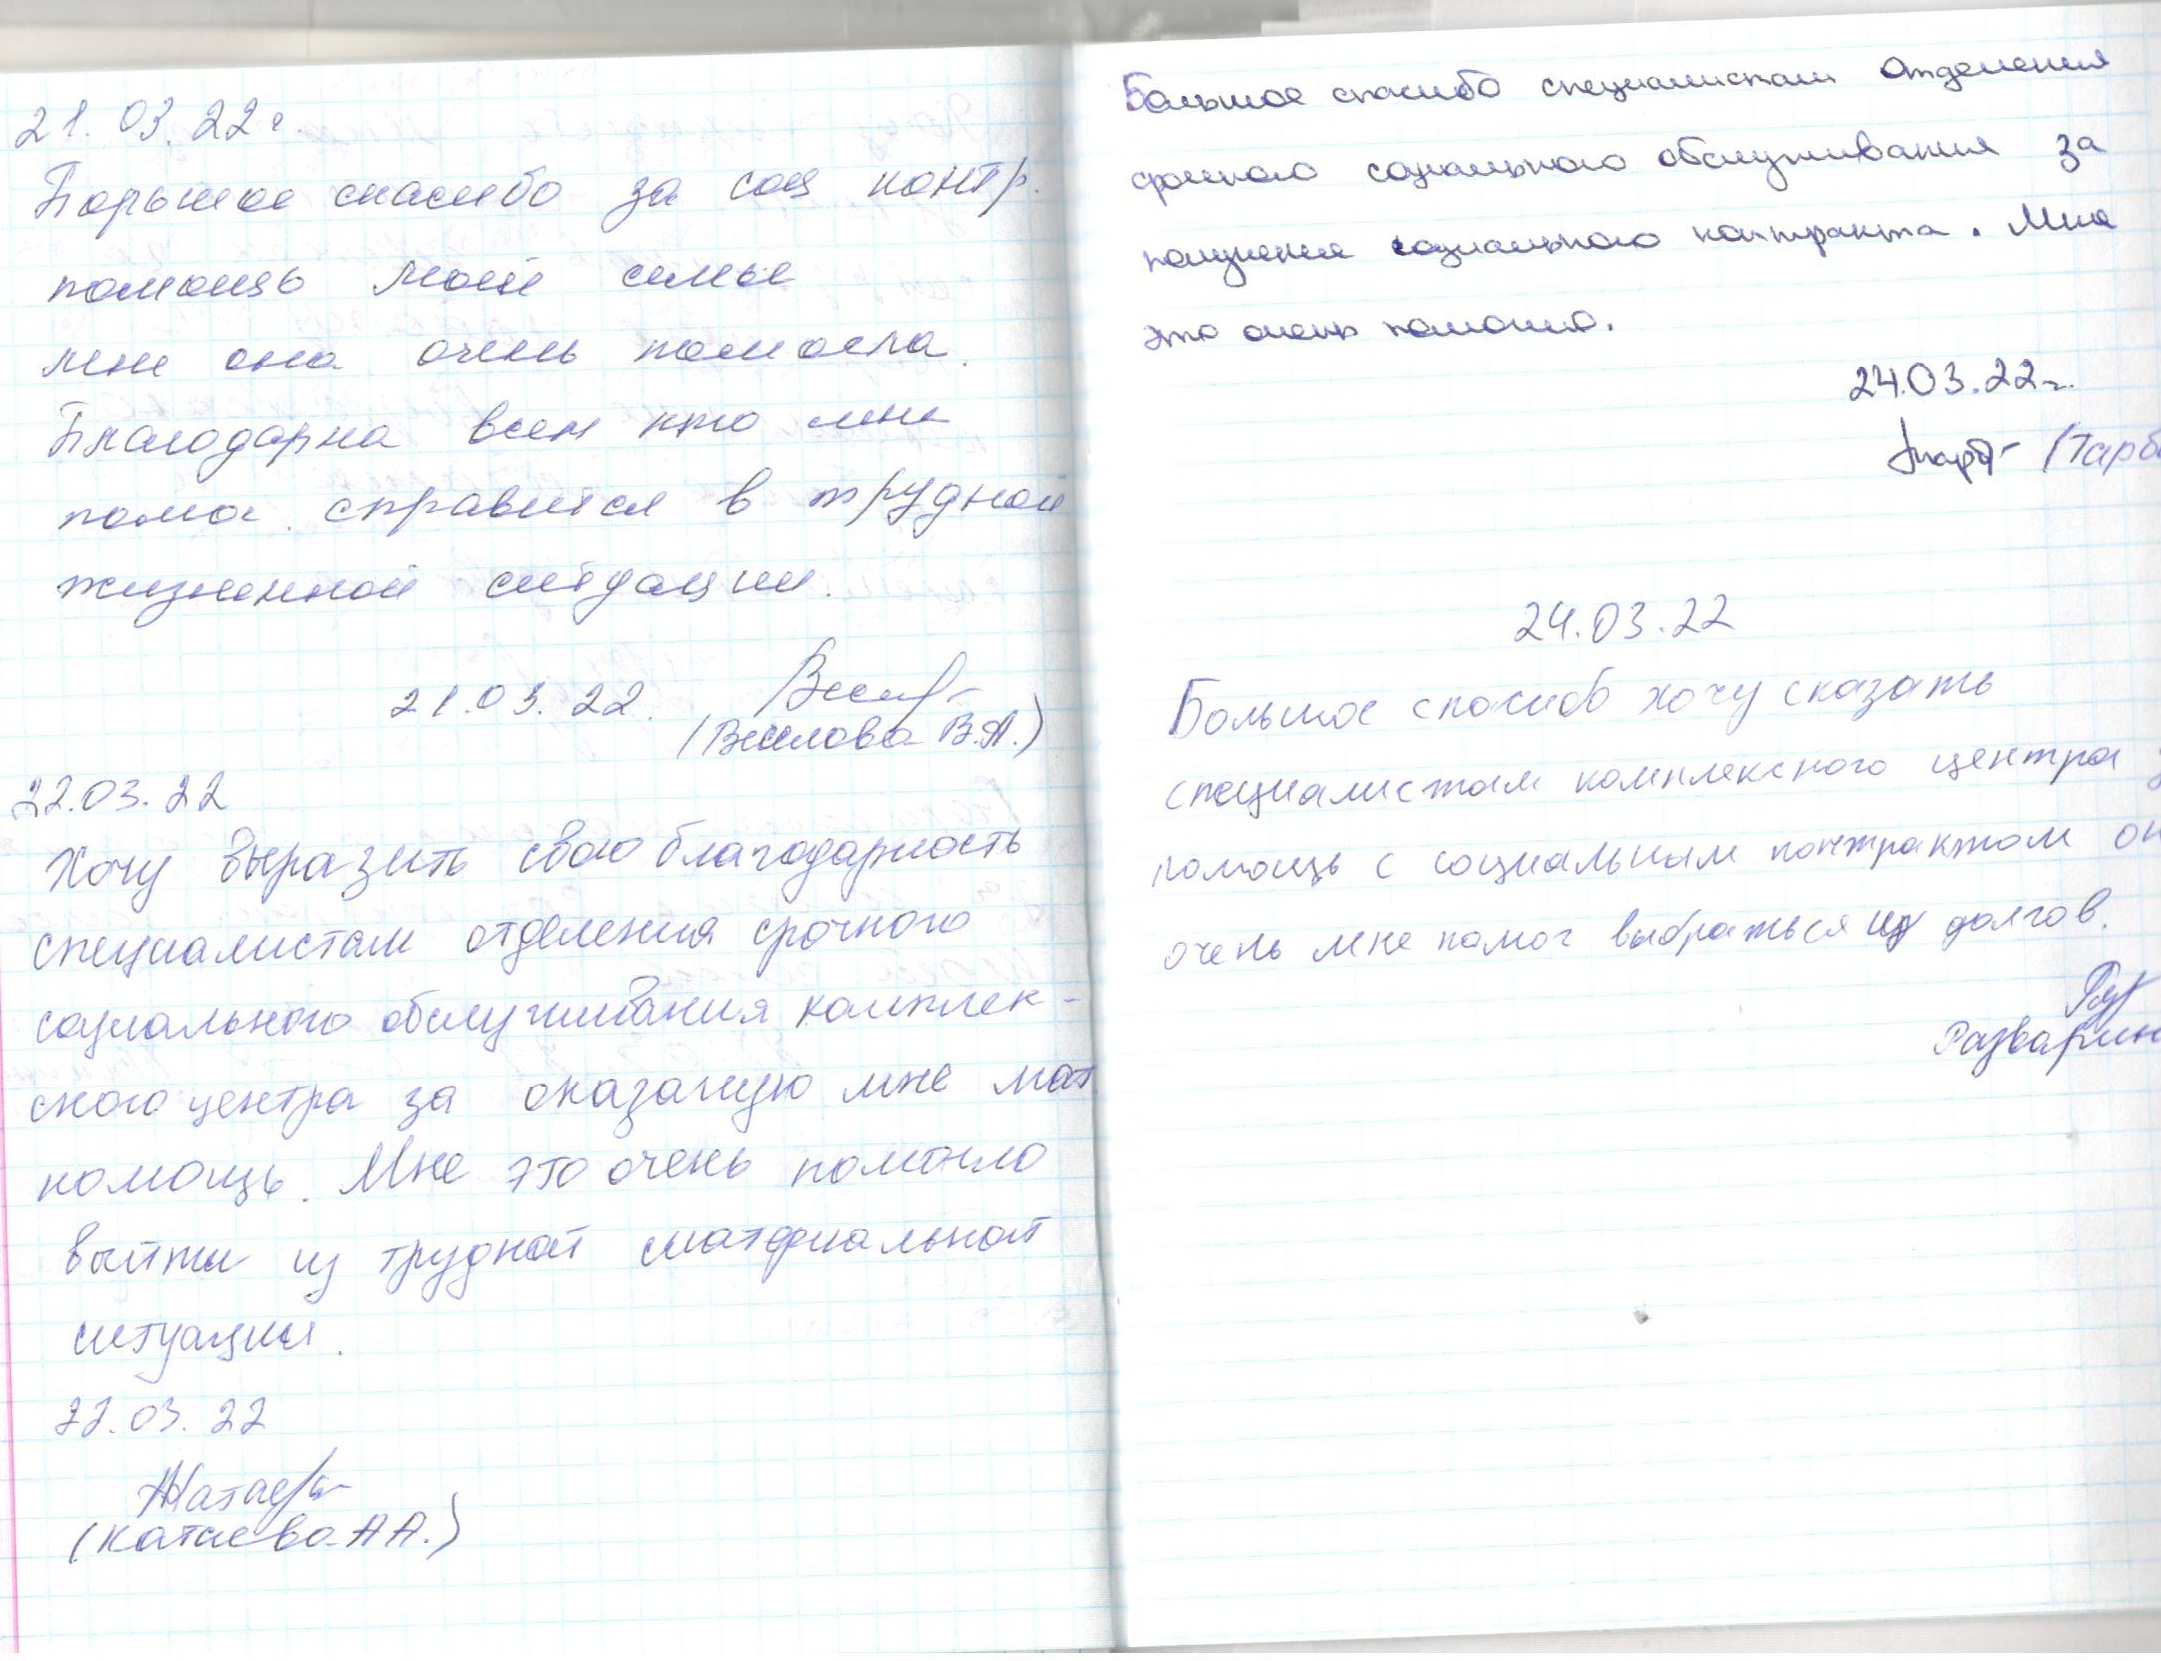 21.03.22г.
Большое спасибо за соц контр.
помощь моей семье
мне она очень помогла.
Благодарна всем кто мне
помог справится в трудной
жизненной ситуации.
21.03.22.
(Веселова В.А.)
22.03.22
Хочу выразить свою благодарность
специалистам отделения срочного
социального обслуживания комплек-
сного центра за оказаную мне мат
помощь. Мне это очень помогло
выйти из трудной материальной
ситуации.
22.03.22
(Катаева А А.)
Большое спасибо специалистам отделения
срочного социального обслуживания за
получение социального контракта. Мне
это очень помогло.
24.03.22г.
(Тарб
24.03.22
Большое спасибо хочу сказать
специалистам комплексного центра
помощь с социальным контрактом он
очень мне помог выбраться из долгов.
Разварин